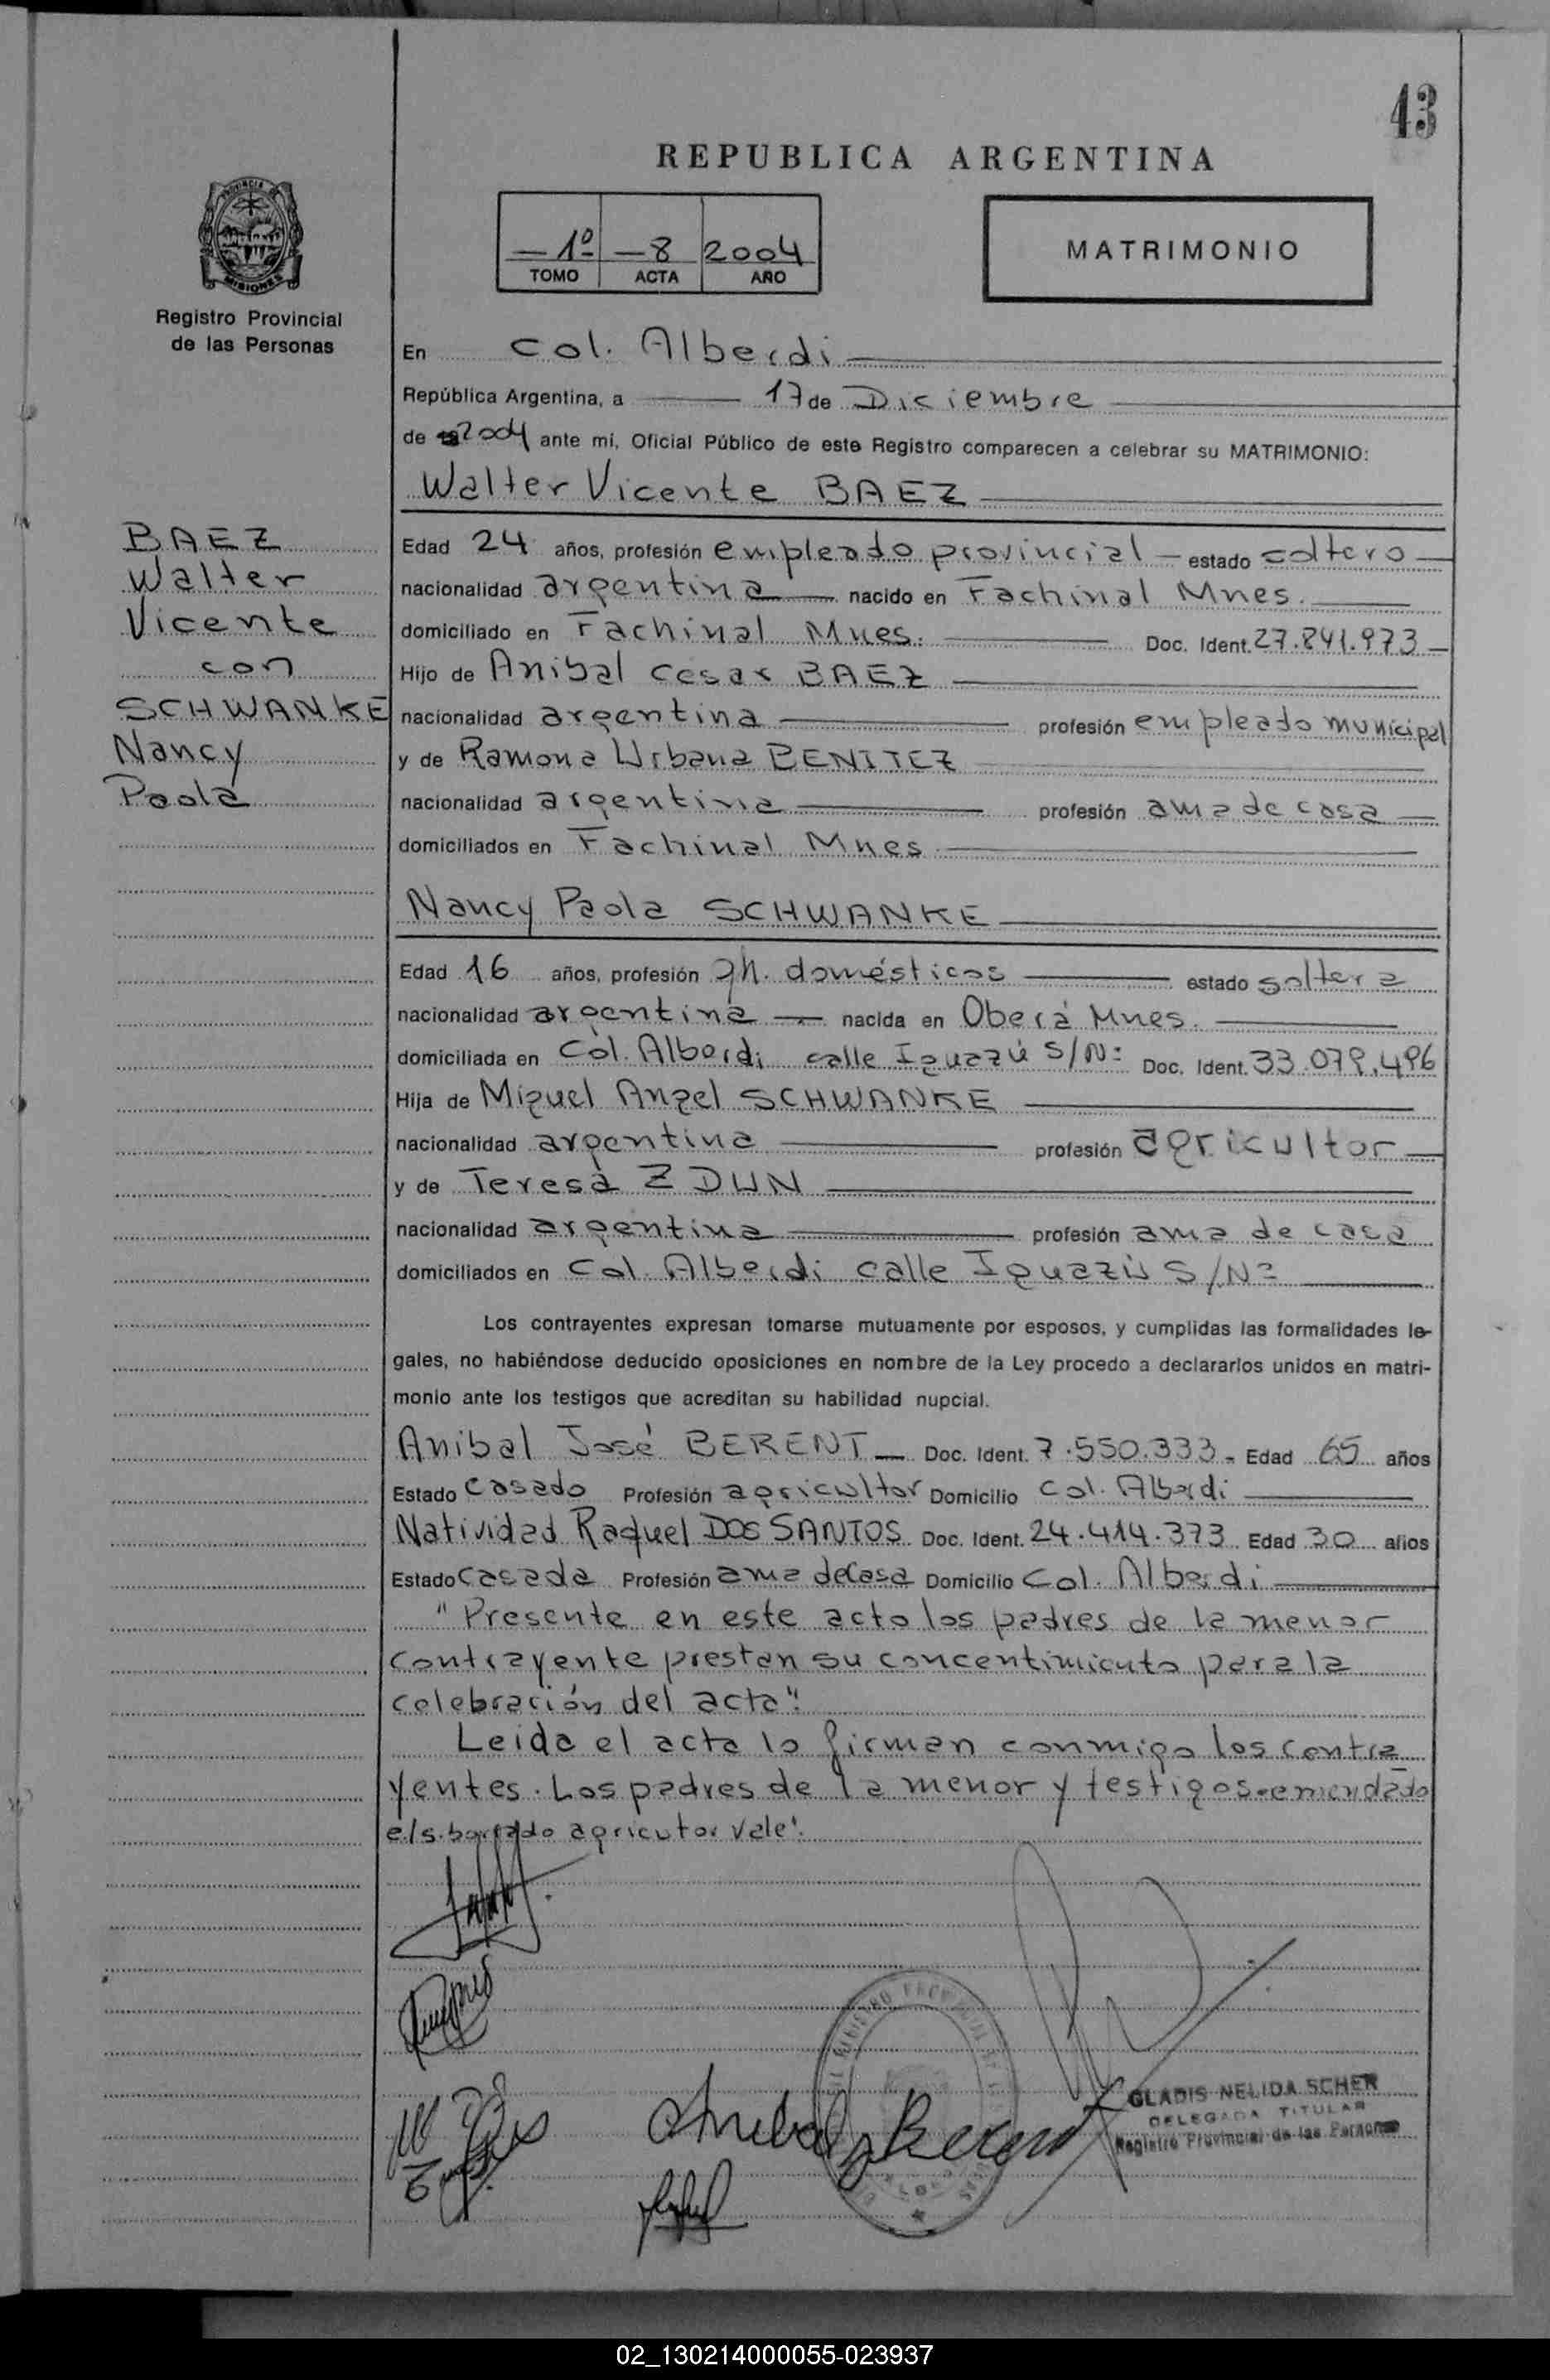 43
REPUBLICA ARGENTINA
PROVINCIA DE
MISIONES
Registro Provincial
de las Personas
— 1º — 8 2004
TOMO ACTA AÑO
MATRIMONIO
En Col. Alberdi
República Argentina, a 17 de Diciembre
de 2004 ante mí, Oficial Público de este Registro comparecen a celebrar su MATRIMONIO:
Walter Vicente BAEZ
BAEZ
Walter
Vicente
con
SCHWANKE
Nancy
Paola
Edad 24 años, profesión empleado provincial — estado soltero
nacionalidad argentina — nacido en Fachinal Mnes.
domiciliado en Fachinal Mnes. Doc. Ident. 27.841.973
Hijo de Anibal Cesar BAEZ
nacionalidad argentina profesión empleado municipal
y de Ramona Urbana BENITEZ
nacionalidad argentina profesión ama de casa
domiciliados en Fachinal Mnes
Nancy Paola SCHWANKE
Edad 16 años, profesión qh. domésticos estado soltera
nacionalidad argentina — nacida en Oberá Mnes.
domiciliada en Col. Alberdi calle Iguazú S/Nº Doc. Ident. 33.079.496
Hija de Miguel Angel SCHWANKE
nacionalidad argentina profesión agricultor
y de Teresa ZDUN
nacionalidad argentina profesión ama de casa
domiciliados en Col. Alberdi calle Iguazú S/Nº
Los contrayentes expresan tomarse mutuamente por esposos, y cumplidas las formalidades le-
gales, no habiéndose deducido oposiciones en nombre de la Ley procedo a declararlos unidos en matri-
monio ante los testigos que acreditan su habilidad nupcial.
Anibal José BERENT — Doc. Ident. 7.550.333 - Edad 65 años
Estado Casado Profesión agricultor Domicilio Col. Alberdi
Natividad Raquel DOS SANTOS Doc. Ident. 24.414.373 Edad 30 años
Estado casada Profesión ama de Casa Domicilio Col. Alberdi
"Presente en este acto los padres de la menor
contrayente prestan su concentimiento para la
celebración del acta".
Leida el acta lo firman conmigo los contra
yentes. Los padres de la menor y testigos.-emendado
e/s. borrado agricutor Vale".
Anibal J Berent
GLADIS NELIDA SCHER
DELEGADA TITULAR
Registro Provincial de las Personas
02_130214000055-023937